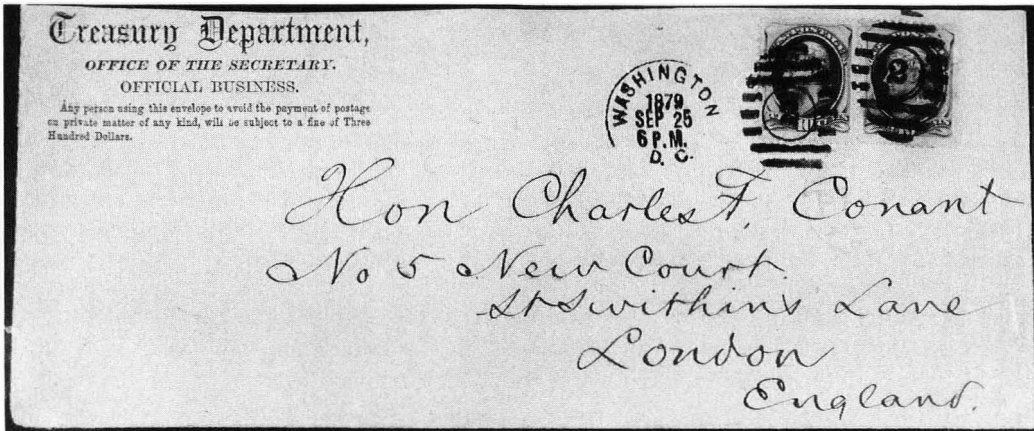 Treasury Department,
OFFICE OF THE SECRETARY.
OFFICIAL BUSINESS.
Any person using this envelope to avoid the payment of postage
on private matter of any kind, will be subject to a fine of Three
Hundred Dollars.
WASHINGTON
1879
SEP 25
6 P.M.
D. C.
2
Hon Charles F. Conant
No 5 New Court
St Swithin's Lane
London
England.